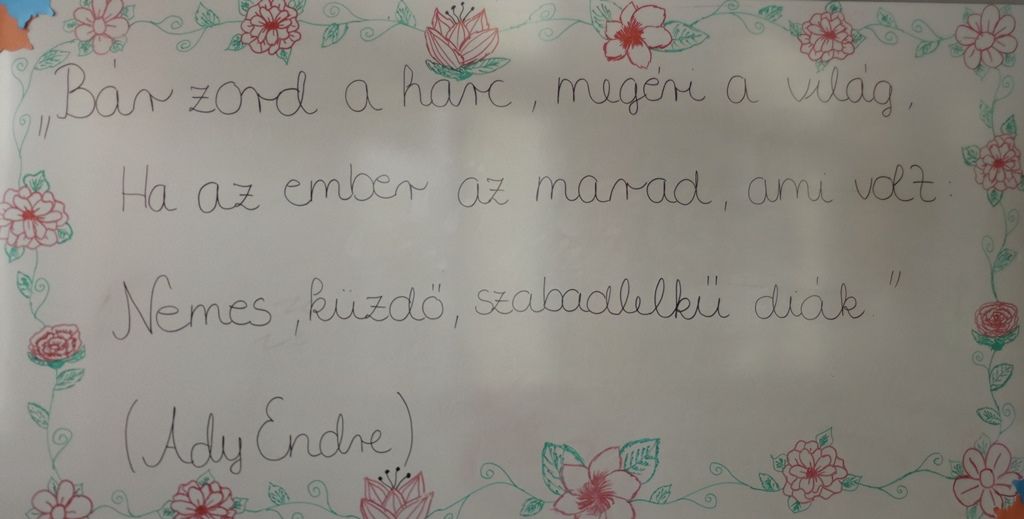 „Bár zord a harc, megéri a világ,
Ha az ember az marad, ami volt:
Nemes, küzdő, szabadlelkű diák"
(Ady Endre)